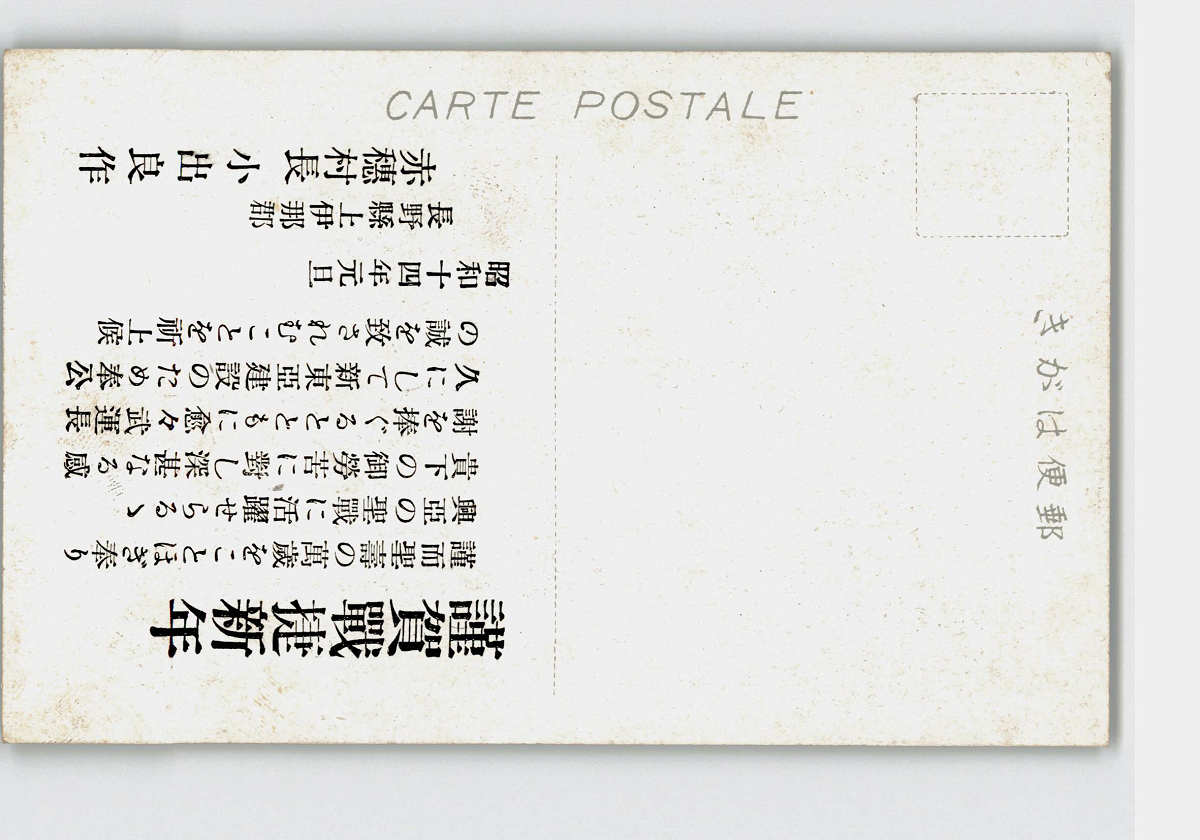 CARTE POSTALE
郵便はがき
謹賀戰捷新年
謹而聖壽の萬歲をことほぎ奉り
興亞の聖戰に活躍せらるゝ
貴下の御勞苦に對し深甚なる感
謝を捧ぐるとともに愈々武運長
久にして新東亞建設のため奉公
の誠を致されむことを祈上候
昭和十四年元旦
長野縣上伊那郡
赤穗村長 小出良作